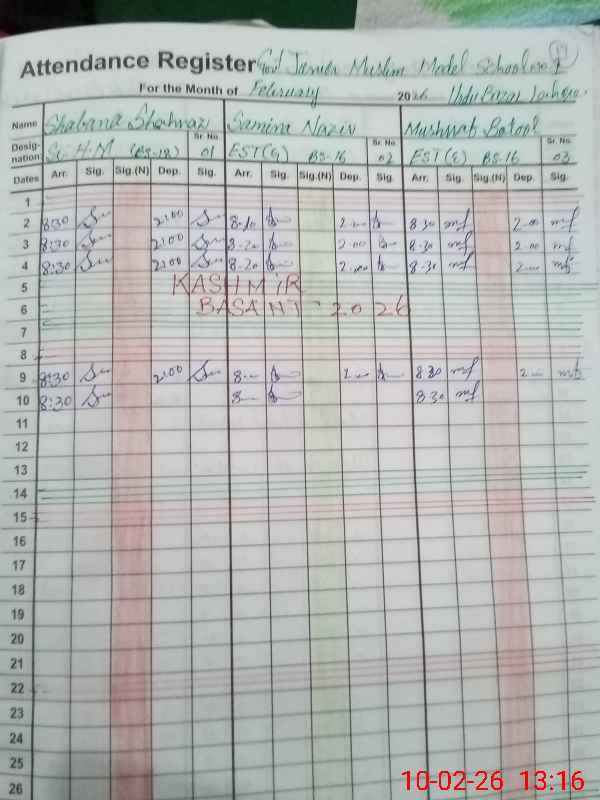 Attendance Register Govt Junior Muslim Model School
For the Month of February 2026 Urdu Bazar Lahore
Name Shabana Shahnaz Samina Nazir Mushwat Batool
Designation Sr. No. Sr. No. Sr. No.
S.H.M (BS-18) 01 EST(G) BS-16 02 EST(E) BS-16 03
Dates Arr. Sig. Sig.(N) Dep. Sig. Arr. Sig. Sig.(N) Dep. Sig. Arr. Sig. Sig.(N) Dep. Sig.
1
2 8:30 2:00 8-10 2-00 8 30 mf 2-00 mf
3 8:30 2:00 8-20 2-00 8-30 mf 2-00 mf
4 8:30 2:00 8-20 2-00 8-30 mf 2-00 mf
5 KASHMIR
6 BASANT - 2026
7
8
9 8:30 2:00 8-00 2-00 8 30 mf 2-00 mf
10 8:30 8-00 8 30 mf
11
12
13
14
15
16
17
18
19
20
21
22
23
24
25
26
10-02-26 13:16